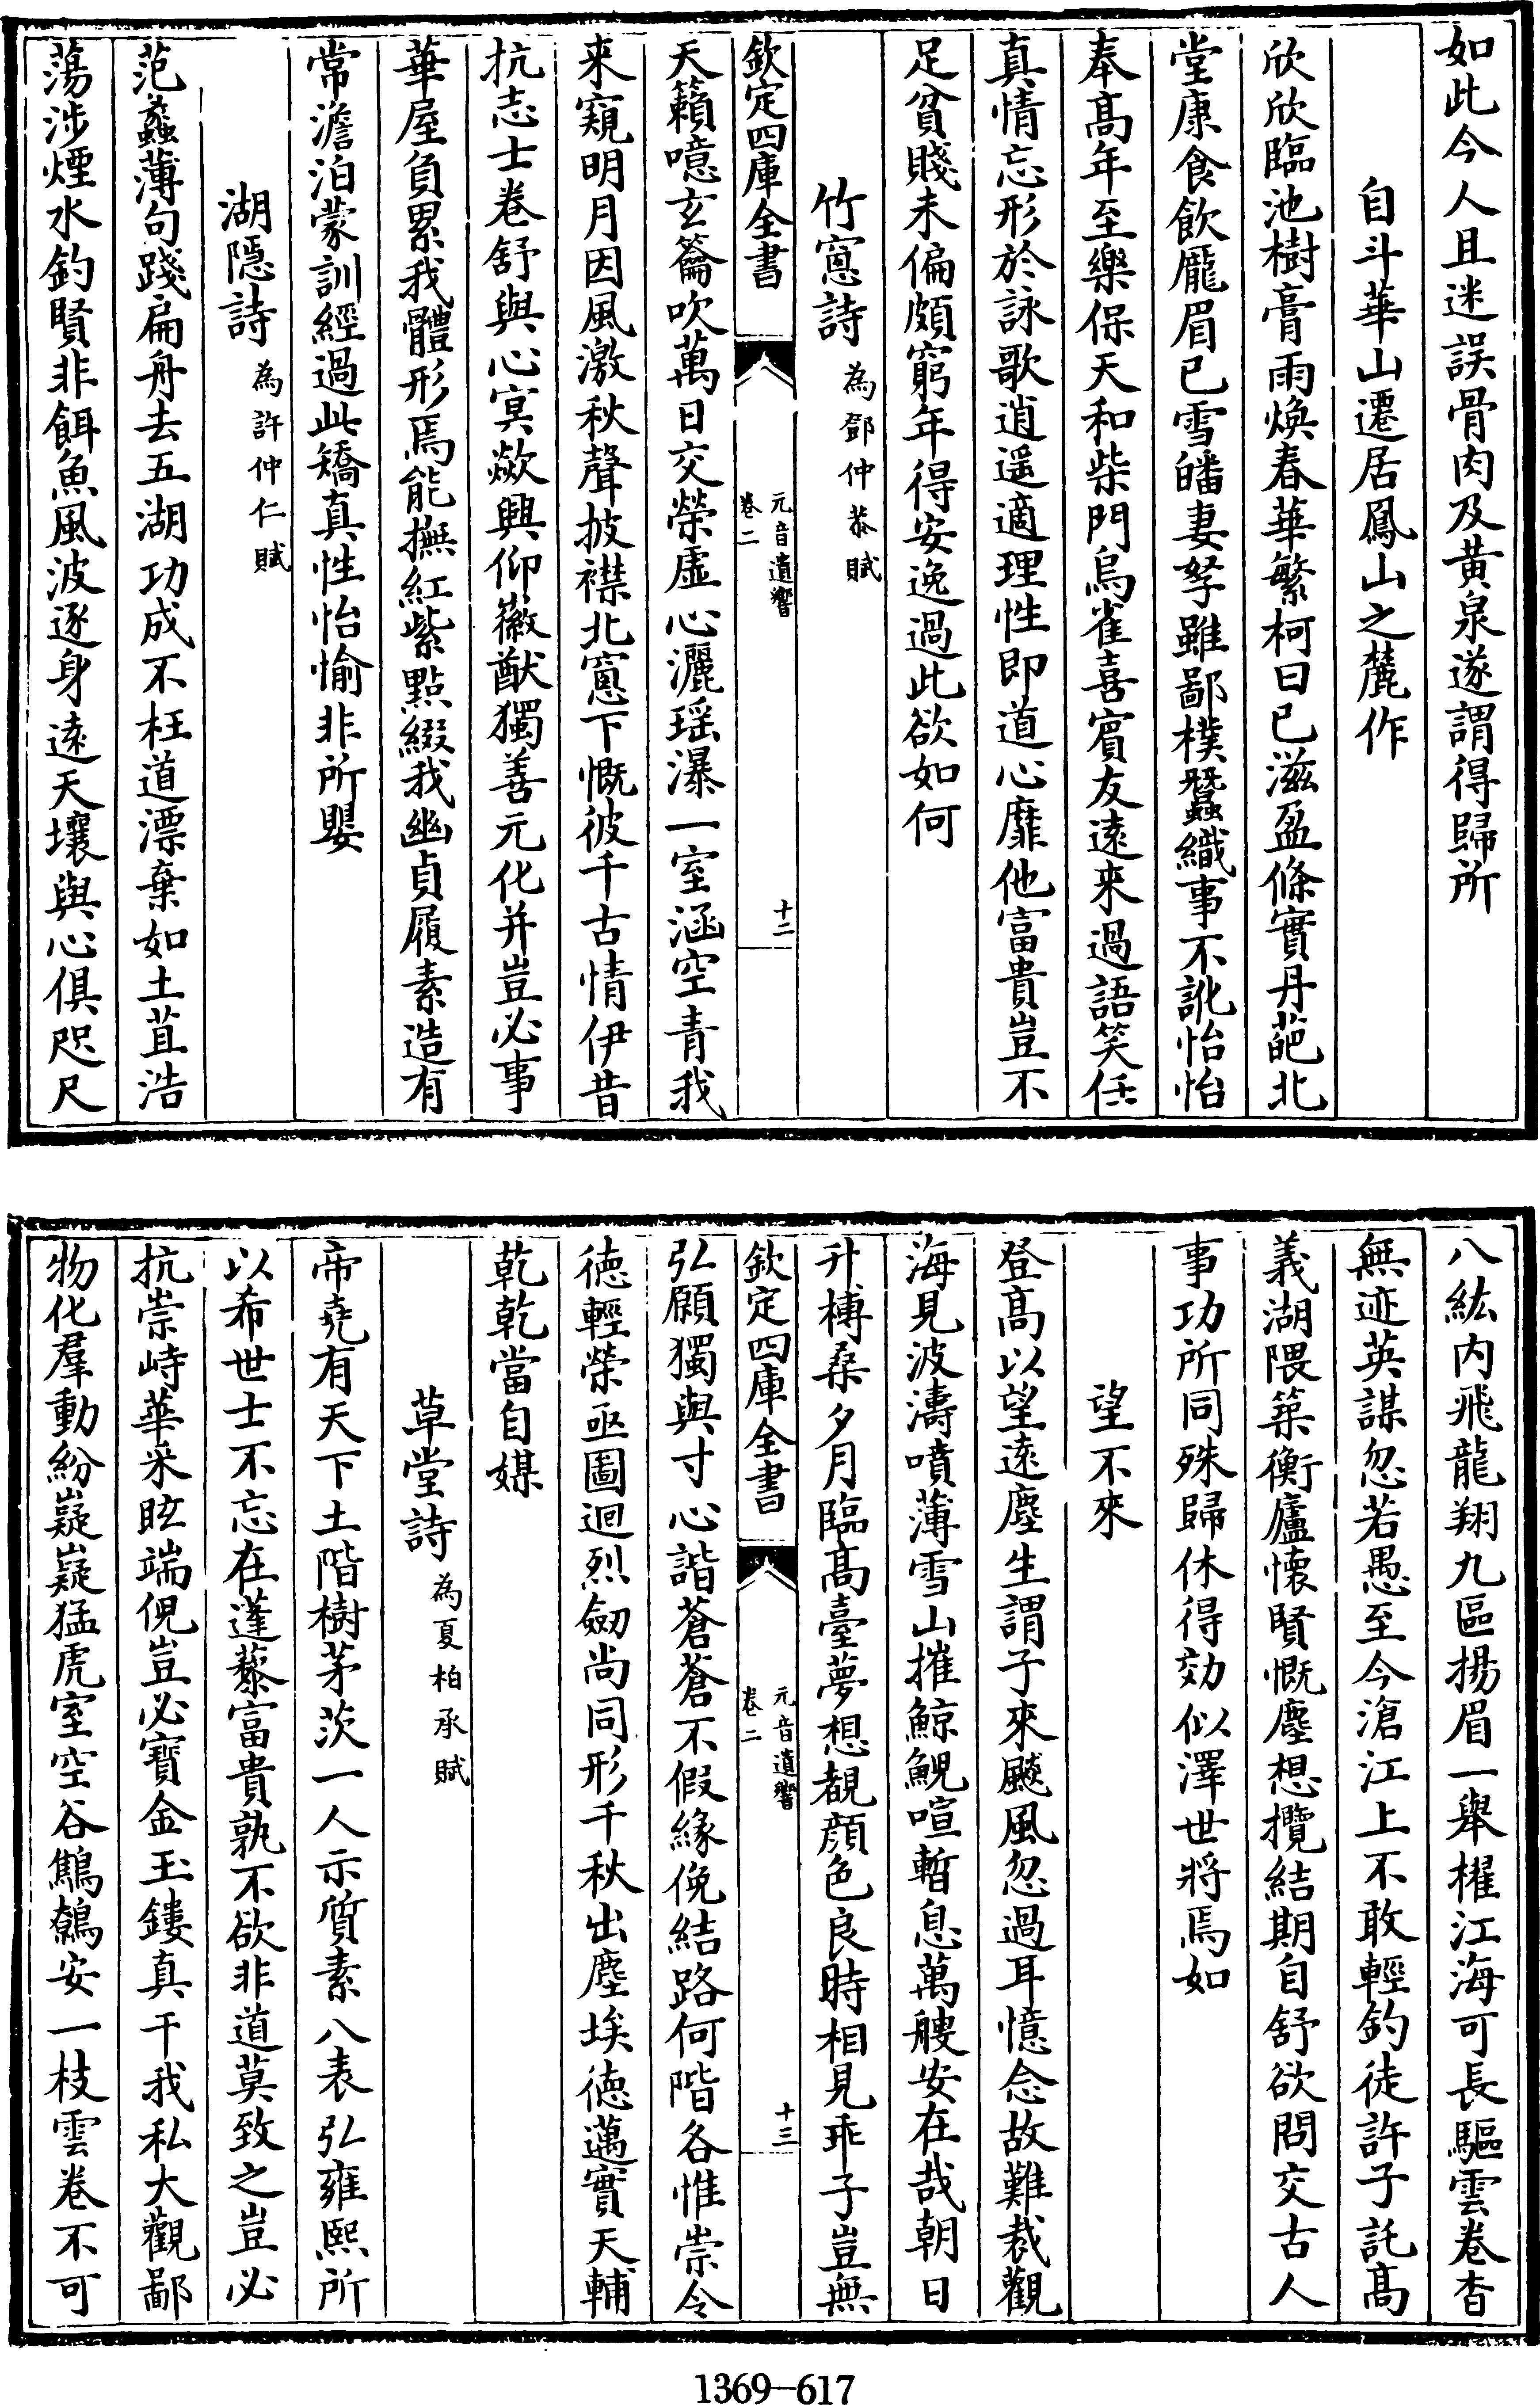 如此今人且迷誤骨肉及黄泉遂謂得歸所
自斗華山遷居鳳山之麓作
欣欣臨池樹膏雨煥春華繁柯日已滋盈條實丹葩北
堂康食飲龎眉已雪皤妻孥雖鄙樸蠶織事不訛怡怡
奉髙年至樂保天和柴門烏雀喜賔友逺来過語笑任
真情忘形於詠歌逍遥適理性即道心靡他富貴豈不
足貧賤未偏頗窮年得安逸過此欲如何
竹窻詩為鄧仲恭賦
欽定四庫全書
元音遺響
卷二
十二
天籟噫玄籥吹萬日交榮虚心灑瑶瀑一室涵空青我
来窺明月因風激秋聲披襟北窻下慨彼千古情伊昔
抗志士卷舒與心冥歘興仰徽猷獨善元化并豈必事
華屋負累我體形焉能撫紅紫點綴我幽貞履素造有
常澹泊蒙訓經過此矯真性怡愉非所嬰
湖隱詩為許仲仁賦
范蠡薄句踐扁舟去五湖功成不枉道漂棄如土苴浩
蕩涉煙水釣賢非餌魚風波逐身逺天壤與心俱咫尺
八紘内飛龍翔九區揚眉一舉櫂江海可長驅雲卷杳
無迹英謀忽若愚至今滄江上不敢輕釣徒許子託髙
義湖隈築衡廬懐賢慨塵想攬結期自舒欲問交古人
事功所同殊歸休得効似澤世將焉如
望不來
登髙以望逺塵生謂子來飇風忽過耳憶念故難裁觀
海見波濤噴薄雪山摧鯨鯢喧暫息萬艘安在哉朝日
升榑桑夕月臨髙臺夢想覩顔色良時相見乖子豈無
欽定四庫全書
元音遺響
卷二
十三
弘願獨與寸心諧蒼蒼不假緣俛結路何階各惟崇令
徳輕榮亟圖迴烈劒尚同形千秋出塵埃徳邁實天輔
乾乾當自媒
草堂詩為夏柏承賦
帝堯有天下土階樹茅茨一人示質素八表弘雍熙所
以希世士不忘在蓬藜富貴孰不欲非道莫致之豈必
抗崇峙華釆眩端倪豈必寳金玉鏤真干我私大觀鄙
物化羣動紛嶷嶷猛虎室空谷鷦鷯安一枝雲卷不可
1369-617